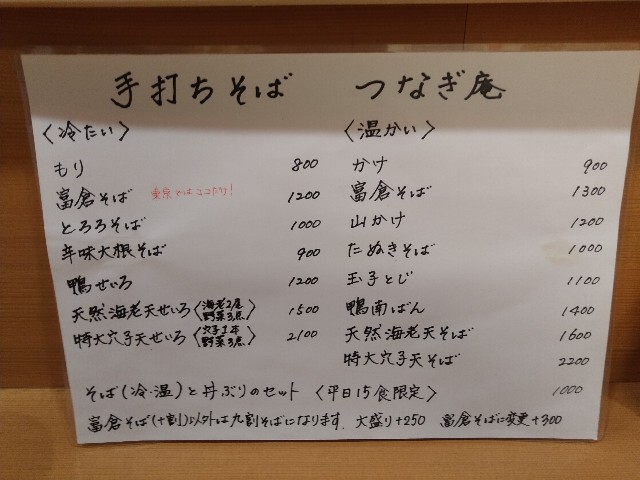 手打ちそば つなぎ庵
〈冷たい〉
もり 800
富倉そば 東京ではココだけ! 1200
とろろそば 1000
辛味大根そば 900
鴨せいろ 1200
天然海老天せいろ〈海老2尾 野菜3点〉 1500
特大穴子天せいろ〈穴子1本 野菜3点〉 2100
〈温かい〉
かけ 900
富倉そば 1300
山かけ 1200
たぬきそば 1000
玉子とじ 1100
鴨南ばん 1400
天然海老天そば 1600
特大穴子天そば 2200
そば(冷・温)と丼ぶりのセット 〈平日15食限定〉 1000
富倉そば(十割)以外は九割そばになります. 大盛り+250 富倉そばに変更+300